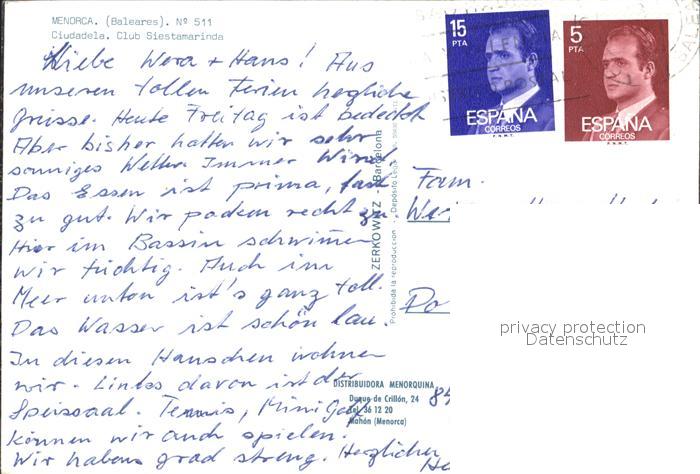 MENORCA. (Baleares). Nº 511
Ciudadela. Club Siestamarinda
Liebe Wera + Hans! Aus
unseren tollen Ferien herzliche
Grüsse. Heute Freitag ist bedeckt
Aber bisher hatten wir sehr
sonniges Wetter. Immer Wind.
Das Essen ist prima, fast
zu gut. Wir packen recht zu
Hier im Bassin schwimmen
wir tüchtig. Auch im
Meer unten ist's ganz toll.
Das Wasser ist schön lau.
In diesen Häuschen wohnen
wir. Links davon ist der
Speisesaal. Tennis, MiniGolf
können wir auch spielen.
Wir habens grad streng. Herzlichen
ZERKOWITZ - Barcelona
Prohibida la reproducción - Depósito Legal
DISTRIBUIDORA MENORQUINA
Duque de Crillón, 24
Tel. 36 12 20
Mahón (Menorca)
15
PTA
ESPAÑA
CORREOS
F.N.M.T.
5
PTA
ESPAÑA
CORREOS
F.N.M.T.
Fam.
We
Do
84
privacy protection
Datenschutz